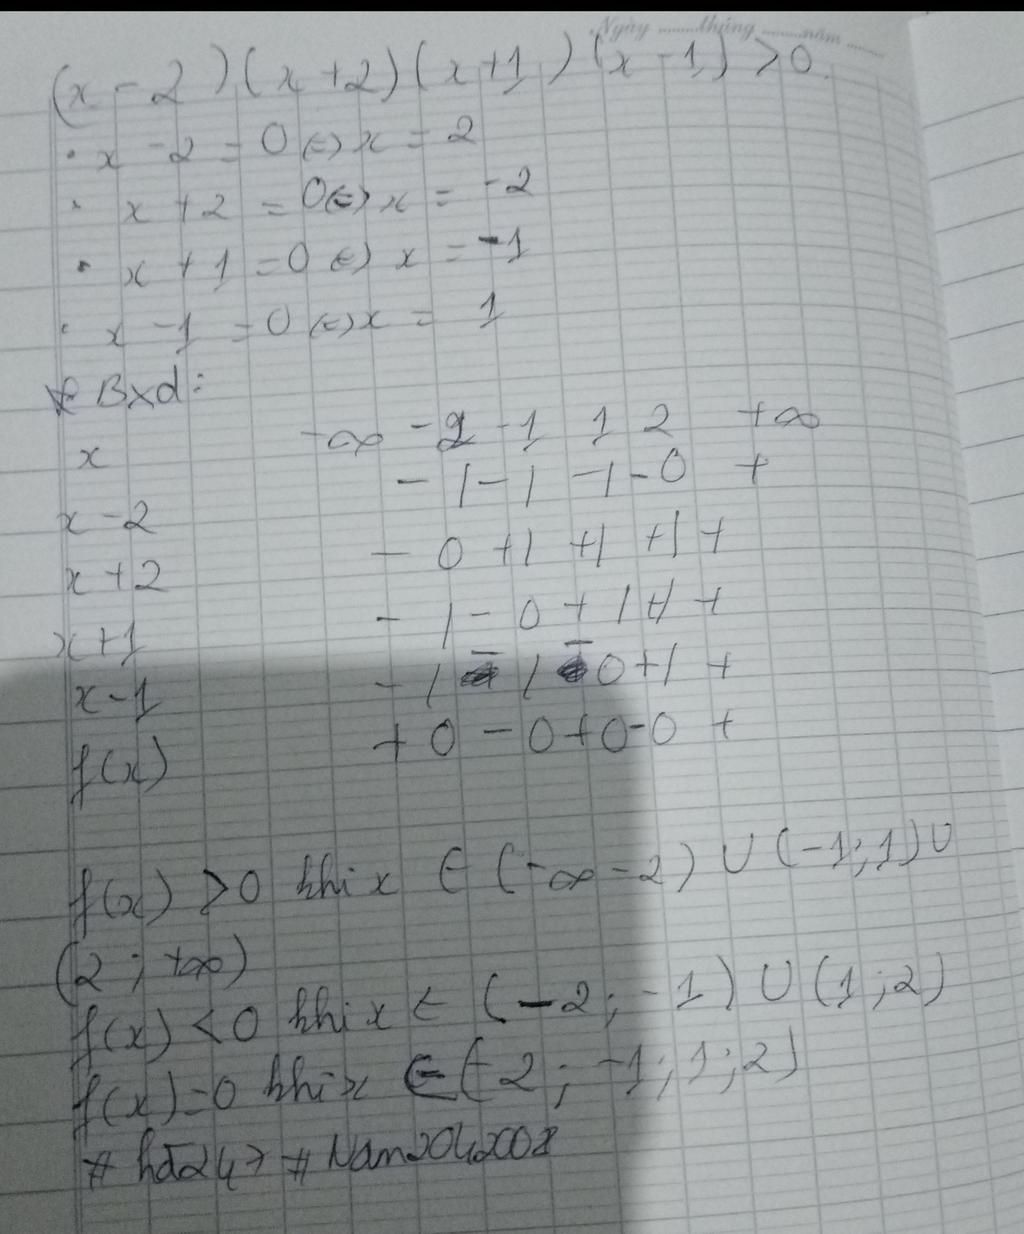 Ngày ........tháng ........năm ......
(x - 2)(x + 2)(x + 1)(x - 1) > 0.
• x - 2 = 0 (=) x = 2
• x + 2 = 0 (=) x = -2
• x + 1 = 0 (=) x = -1
• x - 1 = 0 (=) x = 1
* Bxd:
x -∞ -2 -1 1 2 +∞
x - 2 - | - | - | - 0 +
x + 2 - 0 + | + | + | +
x + 1 - | - 0 + | + | +
x - 1 - | - | - 0 + | +
f(x) + 0 - 0 + 0 - 0 +
f(x) > 0 khi x ∈ (-∞ -2) ∪ (-1; 1) ∪
(2; +∞)
f(x) < 0 khi x ∈ (-2; -1) ∪ (1; 2)
f(x) = 0 khi x ∈ {-2; -1; 1; 2}
# hd247 # Nam2042008